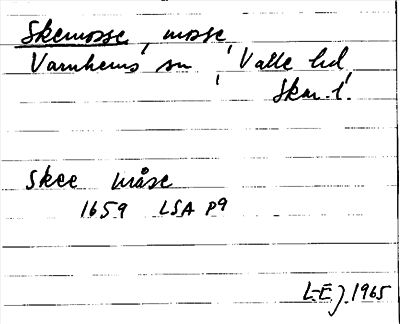 Skemosse, mosse
Varnhems sn, Valle hd,
Skar. l.
Skee måse
1659 LSA P9
L-E J. 1965